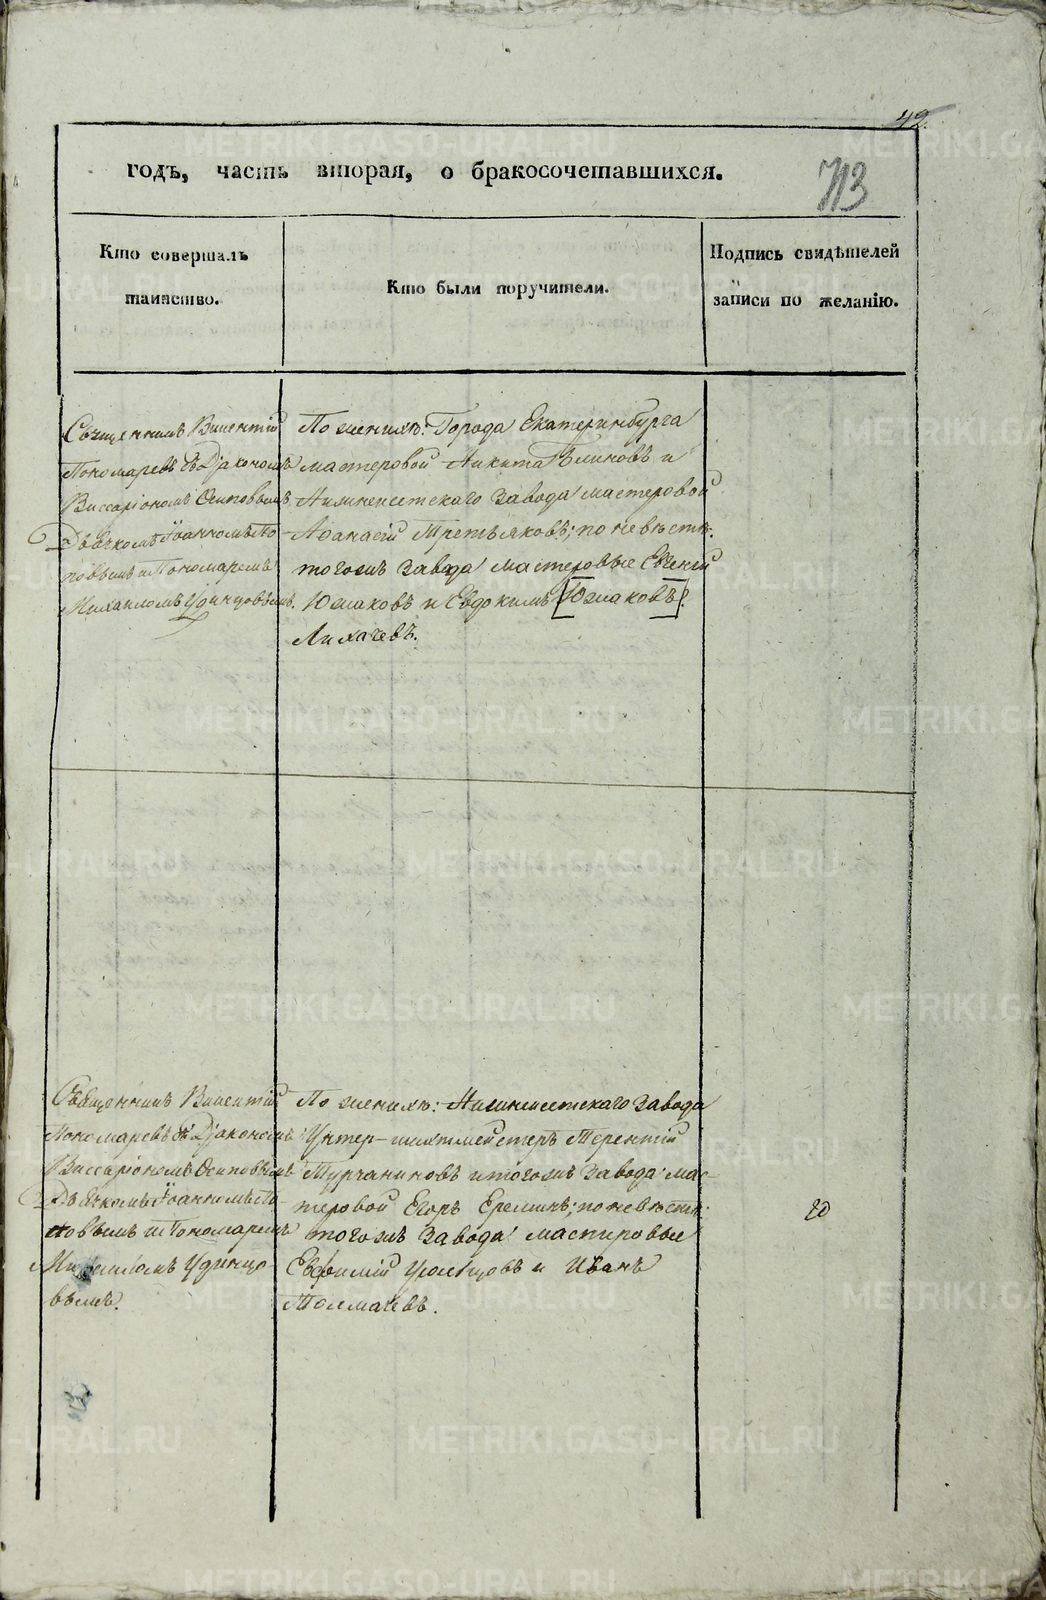 42.
годъ, часть вторая, о бракосочетавшихся.
713
Кто совершалъ
таинство.
Кто были поручители.
Подпись свидѣтелей
записи по желанію.
Священникъ Викентій
Пономаревъ съ Дiакономъ
Виссаріономъ Осиповымъ
Дьячкомъ Іоанномъ По-
повымъ и Пономаремъ
Михаиломъ Удинцовымъ.
По женихѣ: Города Екатеринбурга
мастеровой Никита Блиновъ и
Нижнеисетскаго завода мастеровой
Аѳанасій Третьяковъ; по невѣстѣ:
тогожъ завода мастеровые Евгеній
Южаковъ и Евдокимъ [Южаковъ].
Лихачевъ.
Священникъ Викентій
Пономаревъ съ Дiакономъ
Виссаріономъ Осиповымъ
Дьячкомъ Іоанномъ По-
повымъ и Пономаремъ
Михаиломъ Удинцо-
вымъ.
По женихѣ: Нижнеисетскаго завода
Унтер-шихтмейстеръ Терентій
Турчаниновъ и тогожъ завода мас-
теровой Егоръ Ереминъ; по невѣстѣ:
тогожъ завода мастеровые
Евфимій и Иванъ
Толмачевъ.
20
METRIKI.GASO-URAL.RU